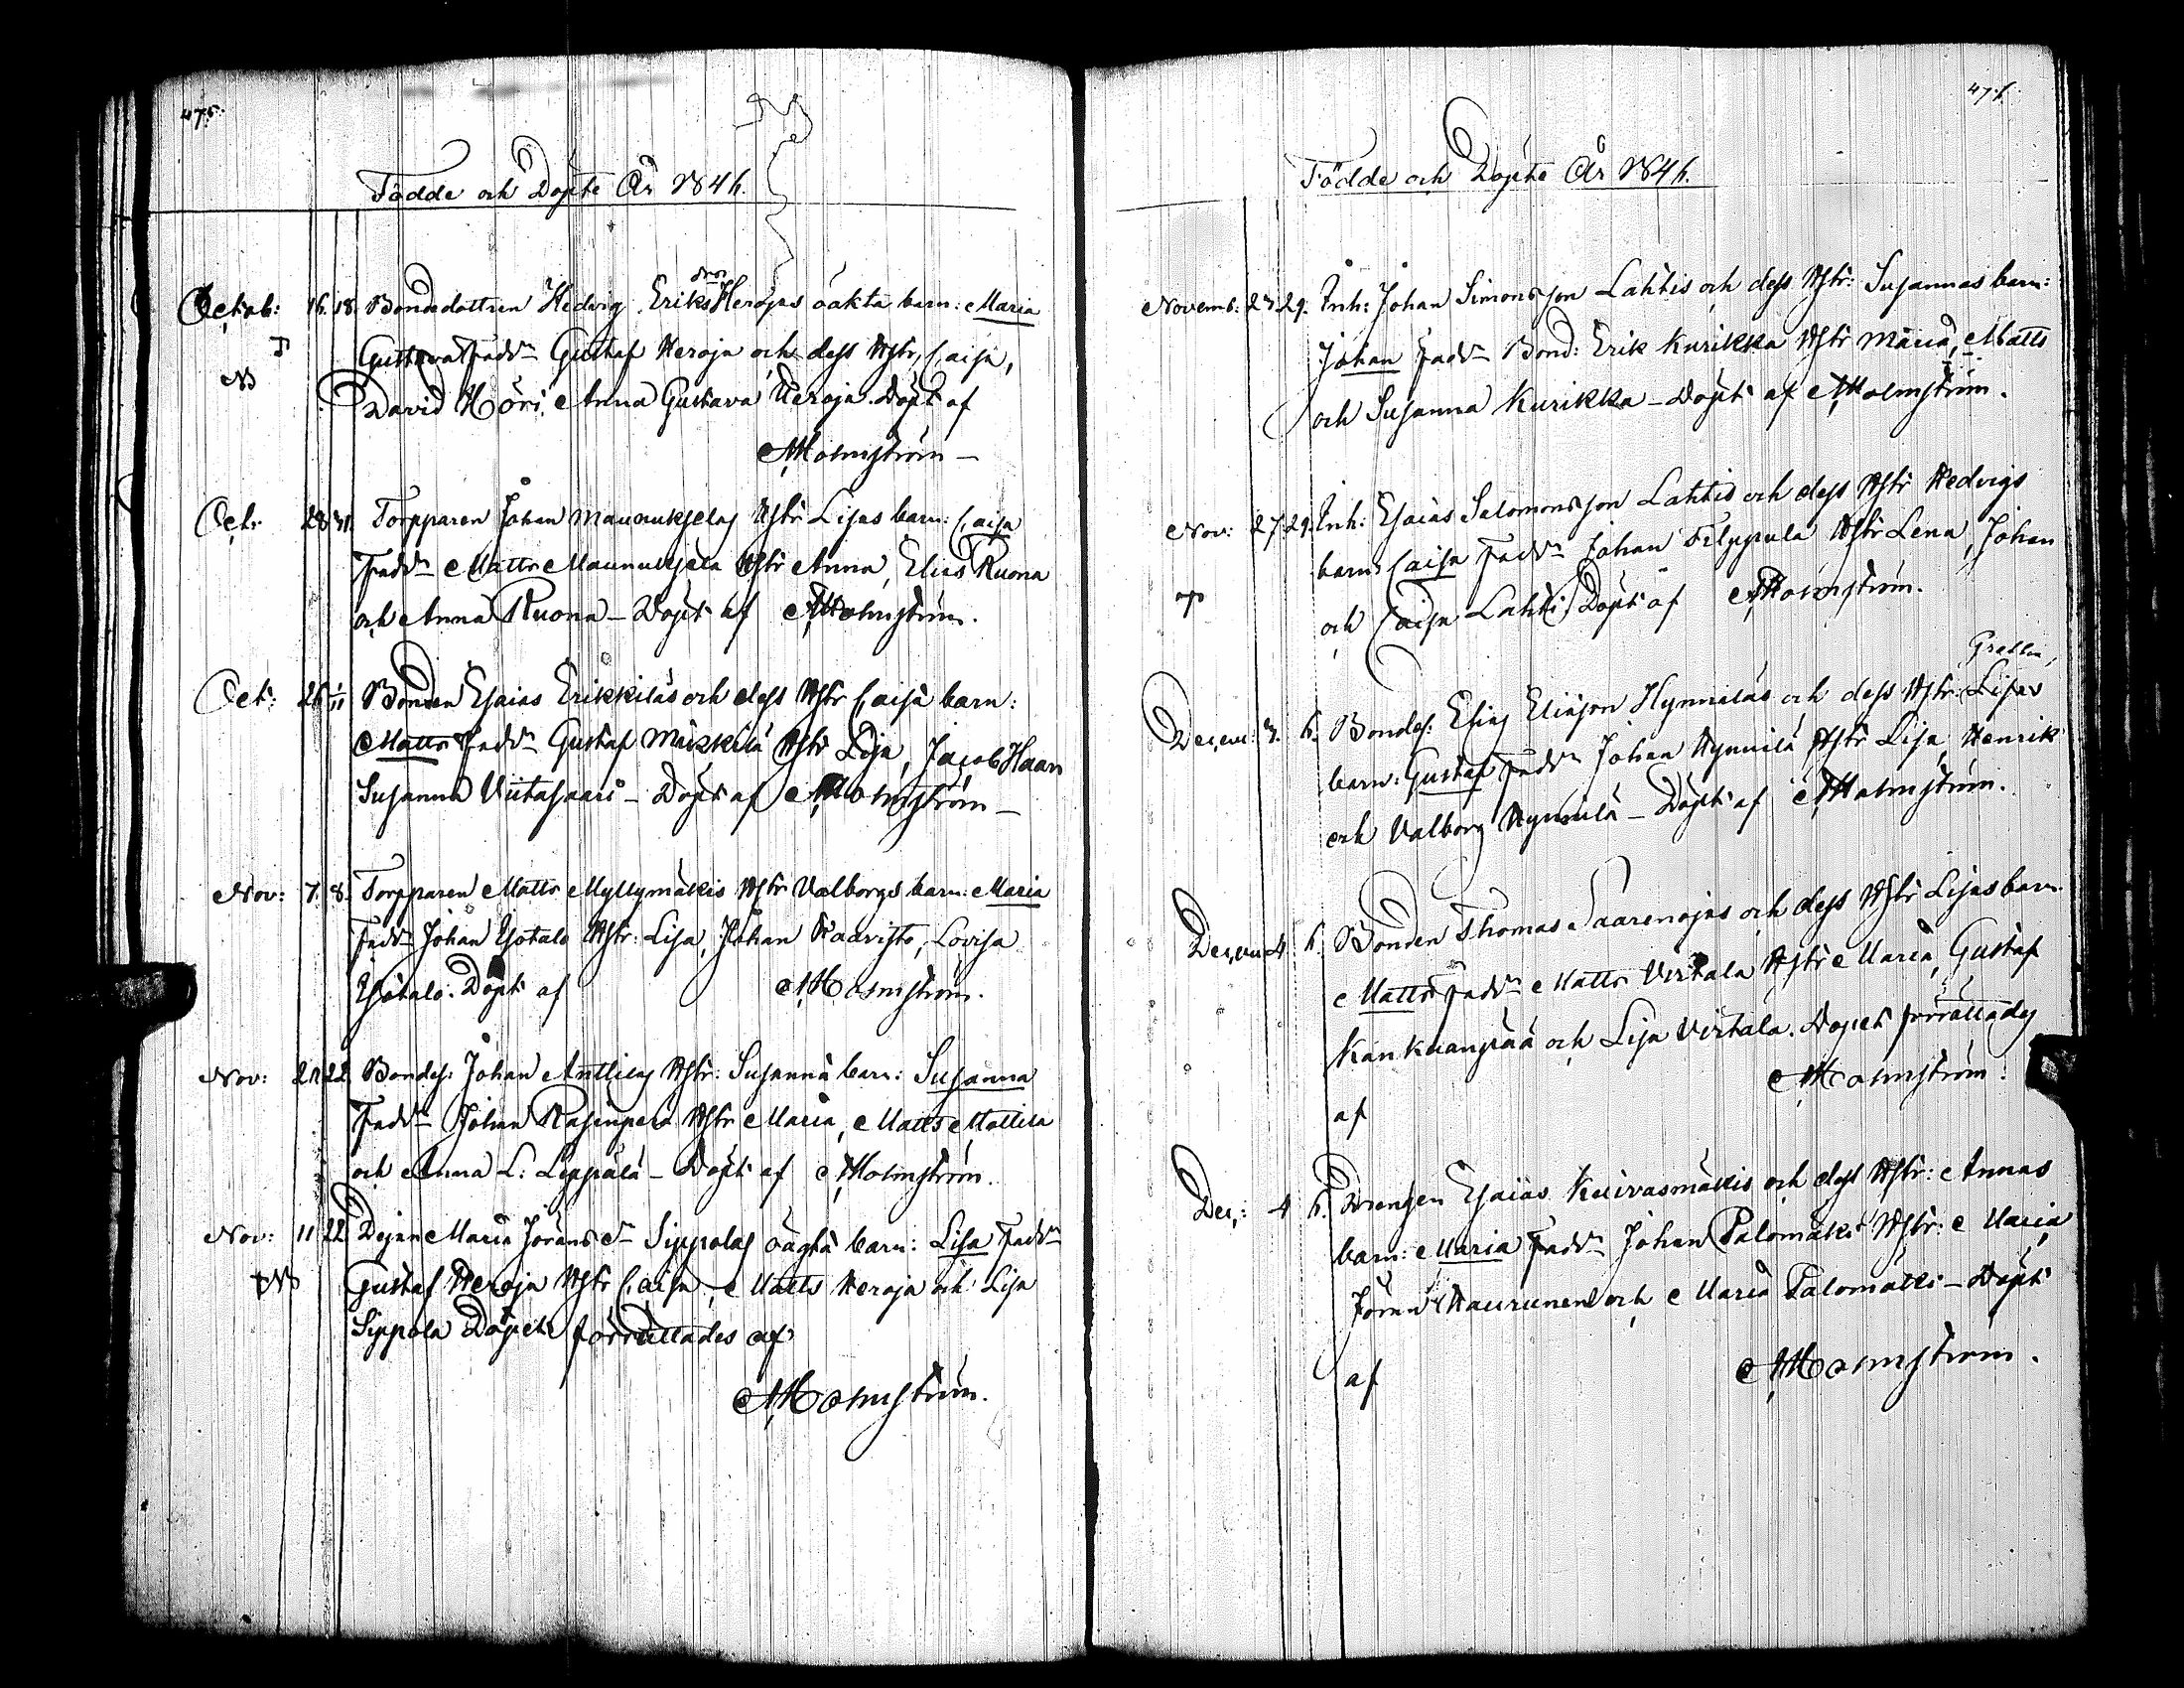 475.
Födde och Döpte År 1846.
Octob: 16. 18. Bondedottren Hedvig Eriksdror Herojas oäkta barn: Maria
Gustava Fadd. Gustaf Heroja och dess Hstr, Caisa,
David Höri, Anna Gustava Heroja. Döpt af
A Holmström —
Oct: 28 31. Torpparen Johan Maunukselas Hstr Lisas barn: Caisa
Fadd. Matts Maunuksela Hstr Anna, Elias Ruona
och Anna Ruona — Döpt af A Holmström.
Oct: 26 1/11 Bonden Esaias Erikkiläs och dess Hstr Caisa barn:
Matts Fadd. Gustaf Mäkkilä Hstr Lisa, Jacob Haan
Susanna Viitasaari — Döpt af A Holmström —
Nov: 7. 8. Torpparen Matts Myllymäkis Hstr Valborgs barn: Maria
Fadd. Johan Ysotalo Hstr: Lisa, Johan Kaavisto, Lovisa
Ysotalo. Döpt af A Holmström.
Nov: 21 22 Bondes: Johan Anttilas Hstr: Susanna barn: Susanna
Fadd. Johan Rasinpera Hstr Maria, Matts Mattila
och Anna L: Leppälä — Döpt af A Holmström.
Nov: 11 22 Pejan Maria Jörans d. Sippolas oägta barn: Lisa Fadd.
Gustaf Heroja Hstr Caisa, Matts Heroja och Lisa
Sippola Döpet förrättades af
A Holmström.
Födde och Döpte År 1846.
Novemb: 27. 29. Inh: Johan Simonsson Lahtis och dess Hstr: Susannas barn:
Johan Fadd. Bond: Erik Kurikka Hstr Maria, Matts
och Susanna Kurikka — Döpt af A Holmström.
Nov: 27. 29. Inh: Esaias Salomonsson Lahtis och dess Hstr Hedvigs
barn: Caisa Fadd. Johan Filppula Hstr Lena, Johan
och Caisa Lahti Döpt af A Holmström.
Decem: 3. 6. Bondes: Elias Eliasson Hynniläs och dess Hstr: Lisas
barn: Gustaf Fadd. Johan Hynnilä Hstr Lisa, Henrik
och Valborg Hynnilä — Döpt af A Holmström.
Decem 4 6. Bonden Thomas Saarenojas och dess Hstr Lisas barn
Matts Fadd. Matts Virtala Hstr Maria, Gustaf
Kankaanpää och Lisa Virtala. Döpet förrättades
af A Holmström.
Dec: 4 6. Drengen Esaias Kuivasmäkis och dess Hstr: Annas
barn: Maria Fadd. Johan Palomäki Hstr: Maria,
Jöran Haurunen och Maria Palomäki — Döpt
af A Holmström.